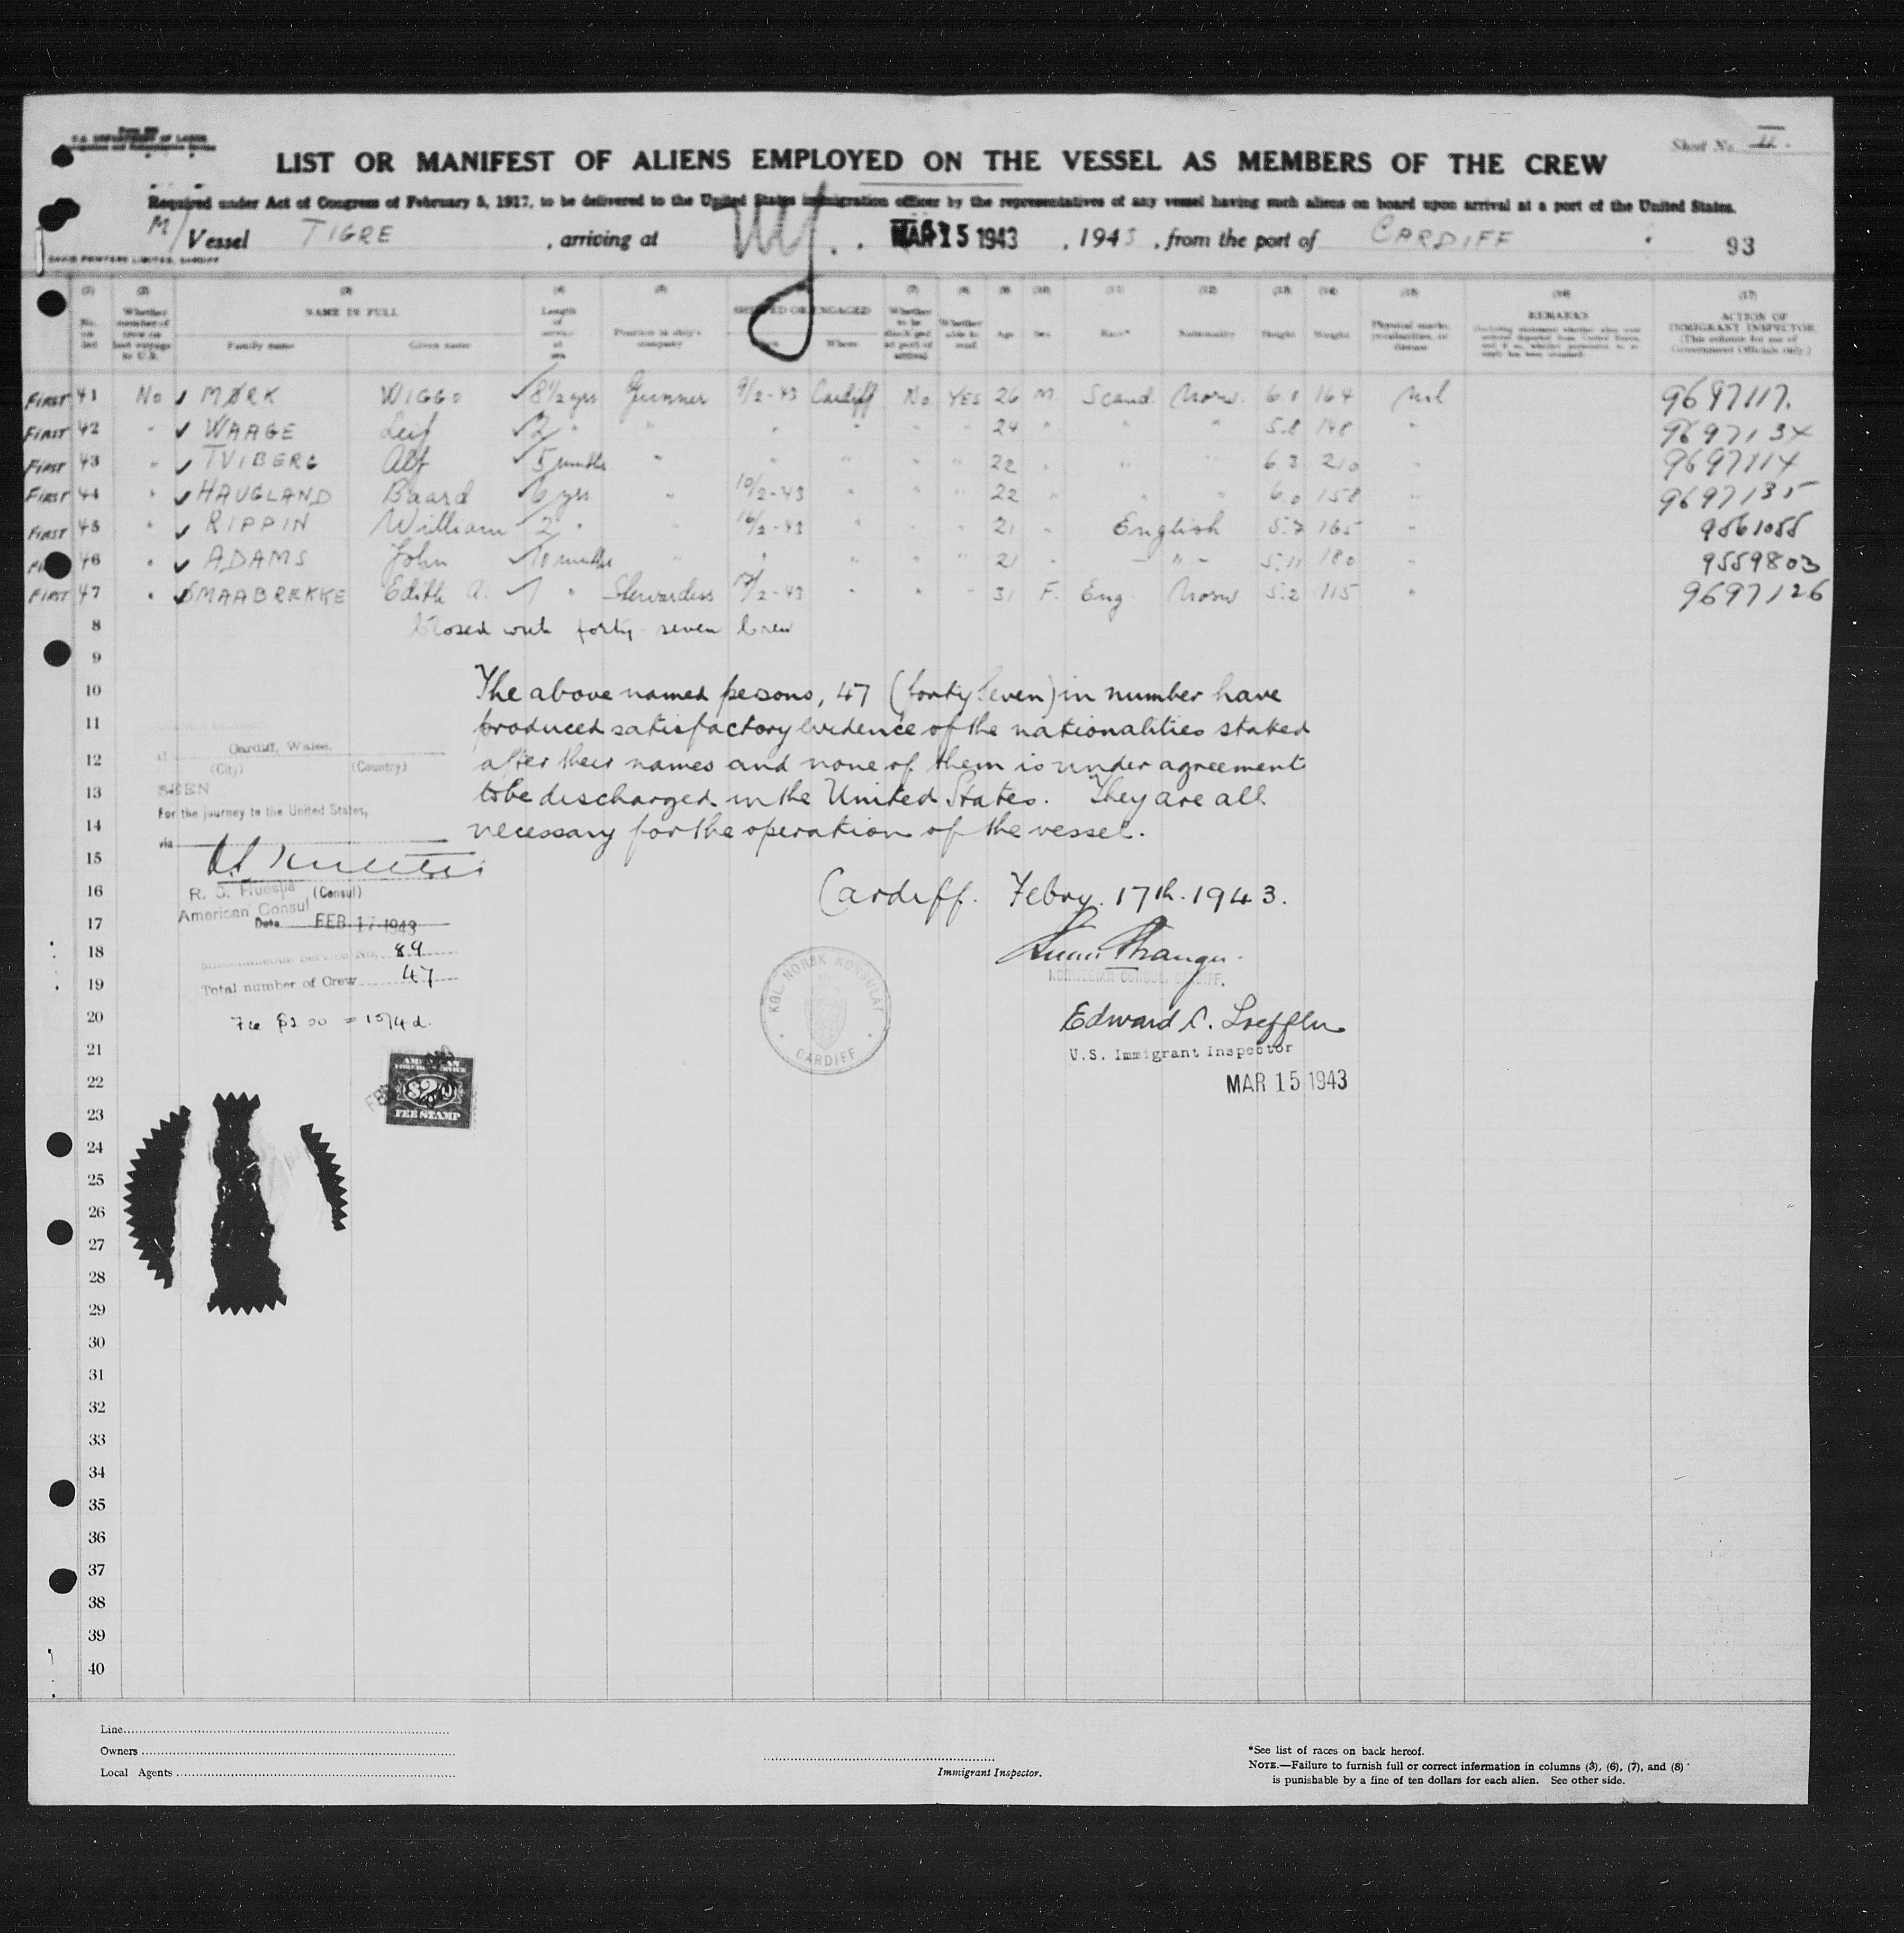 U.S. DEPARTMENT OF LABOR
Sheet No. II.
LIST OR MANIFEST OF ALIENS EMPLOYED ON THE VESSEL AS MEMBERS OF THE CREW
Required under Act of Congress of February 5, 1917, to be delivered to the United States immigration officer by the representatives of any vessel having such aliens on board upon arrival at a port of the United States.
M/ Vessel TIGRE , arriving at NY. MAR 15 1943 , 1943 , from the port of CARDIFF 93
(1) (2) (3) (4) (5) (7) (8) (9) (10) (11) (12) (13) (14) (15) (16) (17)
No. on list Whether member of crew on last voyage to U.S. NAME IN FULL Family name Given name Length of service at sea Position in ship's company SHIPPED OR ENGAGED When Where Whether to be discharged at port of arrival Whether able to read Age Sex Race* Nationality Height Weight Physical marks, peculiarities, or disease REMARKS ACTION OF IMMIGRANT INSPECTOR (This column for use of Government Officials only.)
FIRST 41 No ✓ MØRK WIGGO ✓ 8½ yrs Gunner 9/2-43 Cardiff No YES 26 M. Scand. Norw. 6.1 164 Nil 9697117.
FIRST 42 " ✓ WAAGE Leif ✓ 2 " " " " " " 24 " " " 5.8 148 " 9697134
FIRST 43 " ✓ TVIBERG Alf ✓ 5 months " " " " " 22 " " " 6 3 210 " 9697114
FIRST 44 " ✓ HAUGLAND Baard ✓ 6 yrs " 10/2-43 " " " 22 " " " 6.0 158 " 9697135
FIRST 45 " ✓ RIPPIN William ✓ 2 " " 16/2-43 " " " 21 " English 5.7 165 " 9561055
46 " ✓ ADAMS John ✓ 10 months " " " " " 21 " - " - 5.11 180 " 9559803
FIRST 47 " ✓ SMAABREKKE Edith A. ✓ 1 " Stewardess 17/2-43 " " " 31 F. Eng. Norw 5.2 115 " 9697126
8 Closed with forty-seven Crew
9
10 The above named persons, 47 (forty seven) in number have
11 produced satisfactory evidence of the nationalities stated
at Cardiff, Wales.
12 (City) (Country) after their names and none of them is under agreement
13 SEEN to be discharged in the United States. They are all
For the journey to the United States,
14 necessary for the operation of the vessel.
via
15
16 R. S. Huestis (Consul) Cardiff. Febry. 17th. 1943.
American Consul
17 Date FEB 17 1943
18 Miscellaneous Service No. 89
NORWEGIAN CONSUL, CARDIFF.
19 Total number of Crew 47
KGL. NORSK KONSULAT CARDIFF
20 Fee $2.00 = 10/4d. Edward C. Loeffler
21 U.S. Immigrant Inspector
22 MAR 15 1943
AMERICAN FOREIGN SERVICE $2 FEE STAMP
23
24
25
26
27
28
29
30
31
32
33
34
35
36
37
38
39
40
Line
Owners
Local Agents
Immigrant Inspector.
*See list of races on back hereof.
NOTE.—Failure to furnish full or correct information in columns (3), (6), (7), and (8)
is punishable by a fine of ten dollars for each alien. See other side.